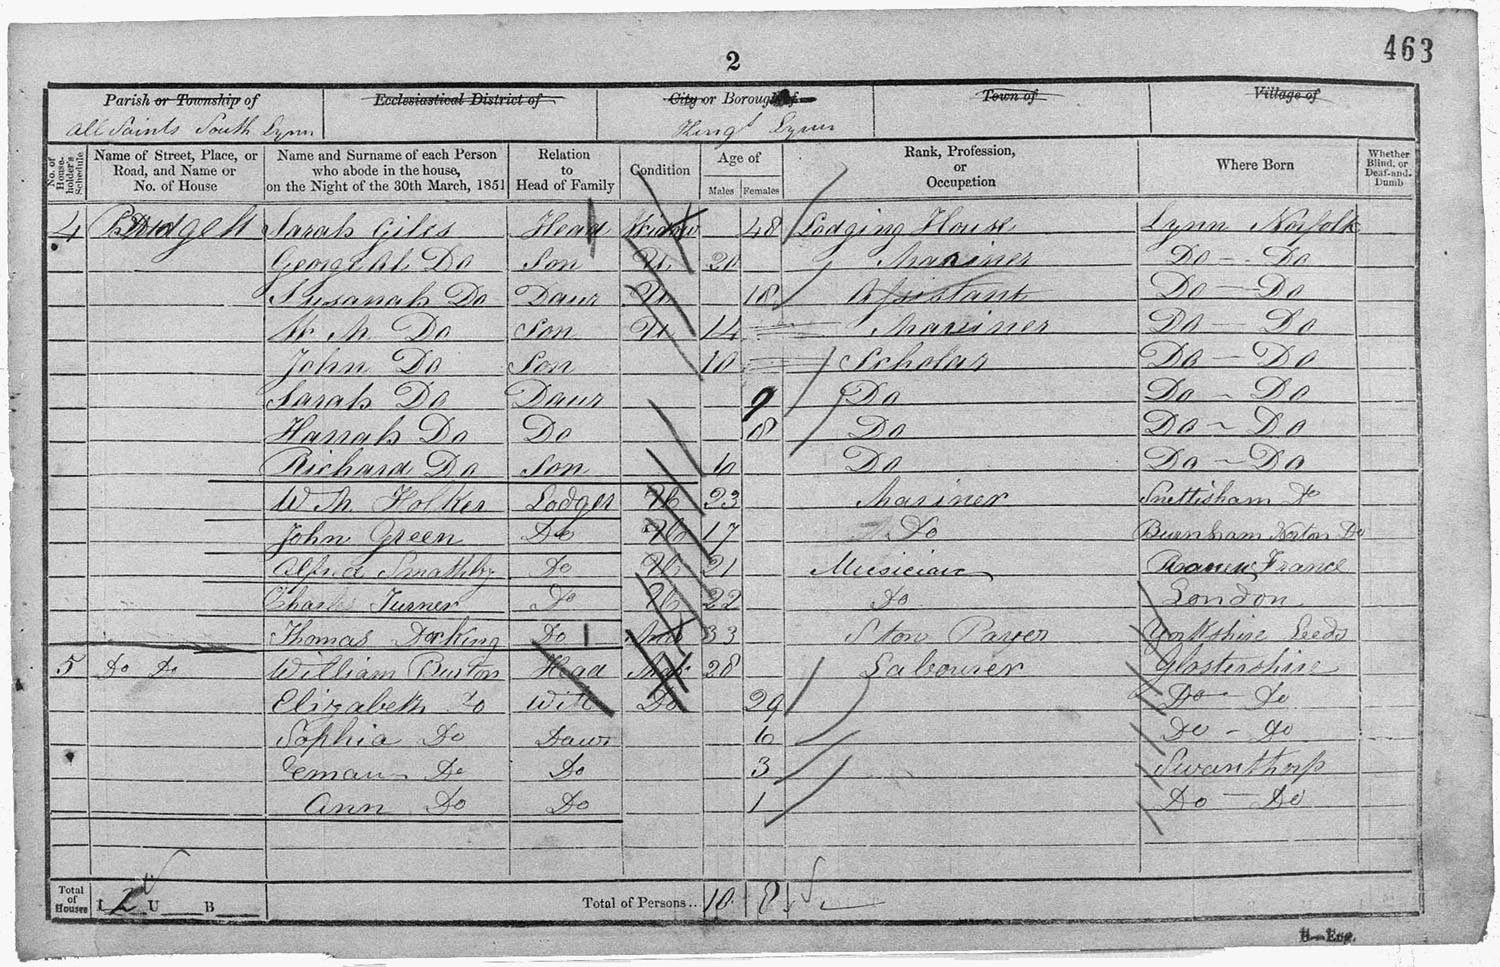 463
2
Parish or Township of Ecclesiastical District of City or Borough of Town of Village of
All Saints South Lynn King's Lynn
No. of House-holder's Schedule Name of Street, Place, or Road, and Name or No. of House Name and Surname of each Person who abode in the house, on the Night of the 30th March, 1851 Relation to Head of Family Condition Age of Males Females Rank, Profession, or Occupation Where Born Whether Blind, or Deaf-and-Dumb
4 Sarah Giles Head Widow 48 Lodging House Lynn Norfolk
Do Son U 20 Mariner Do - Do
Shusanah Do Daur U 18 Assistant Do - Do
W M Do Son U 14 Mariner Do - Do
John Do Son 10 Scholar Do - Do
Sarah Do Daur 9 Do Do - Do
Hanah Do Do 8 Do Do - Do
Richard Do Son 6 Do Do - Do
W M Holker Lodger 23 Mariner Snettisham Do
John Green Do 17 Do Burnham Norton Do
Do 21 Musician France
Charles Turner Do 22 Do London
Thomas Dorking Do 33 Ston Paver Yorkshire Leeds
5 Do Do William Burton Head Mar 28 Labourer Glostershire
Elizabeth Do Wife Do 29 Do - Do
Sophia Do Daur 6 Do - Do
Do Do 3 Swanthorp
Ann Do Do 1 Do - Do
Total of Houses I 2 U B Total of Persons.. 10 8